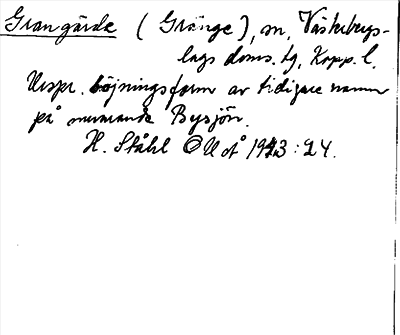 Grangärde (Gränge), sn, Västerbergs-
lags doms. tg, Kopp. l.
Urspr. böjningsform av tidigare namn
på nuvarande Bysjön.
H. Ståhl OUoÅ 1943:24.